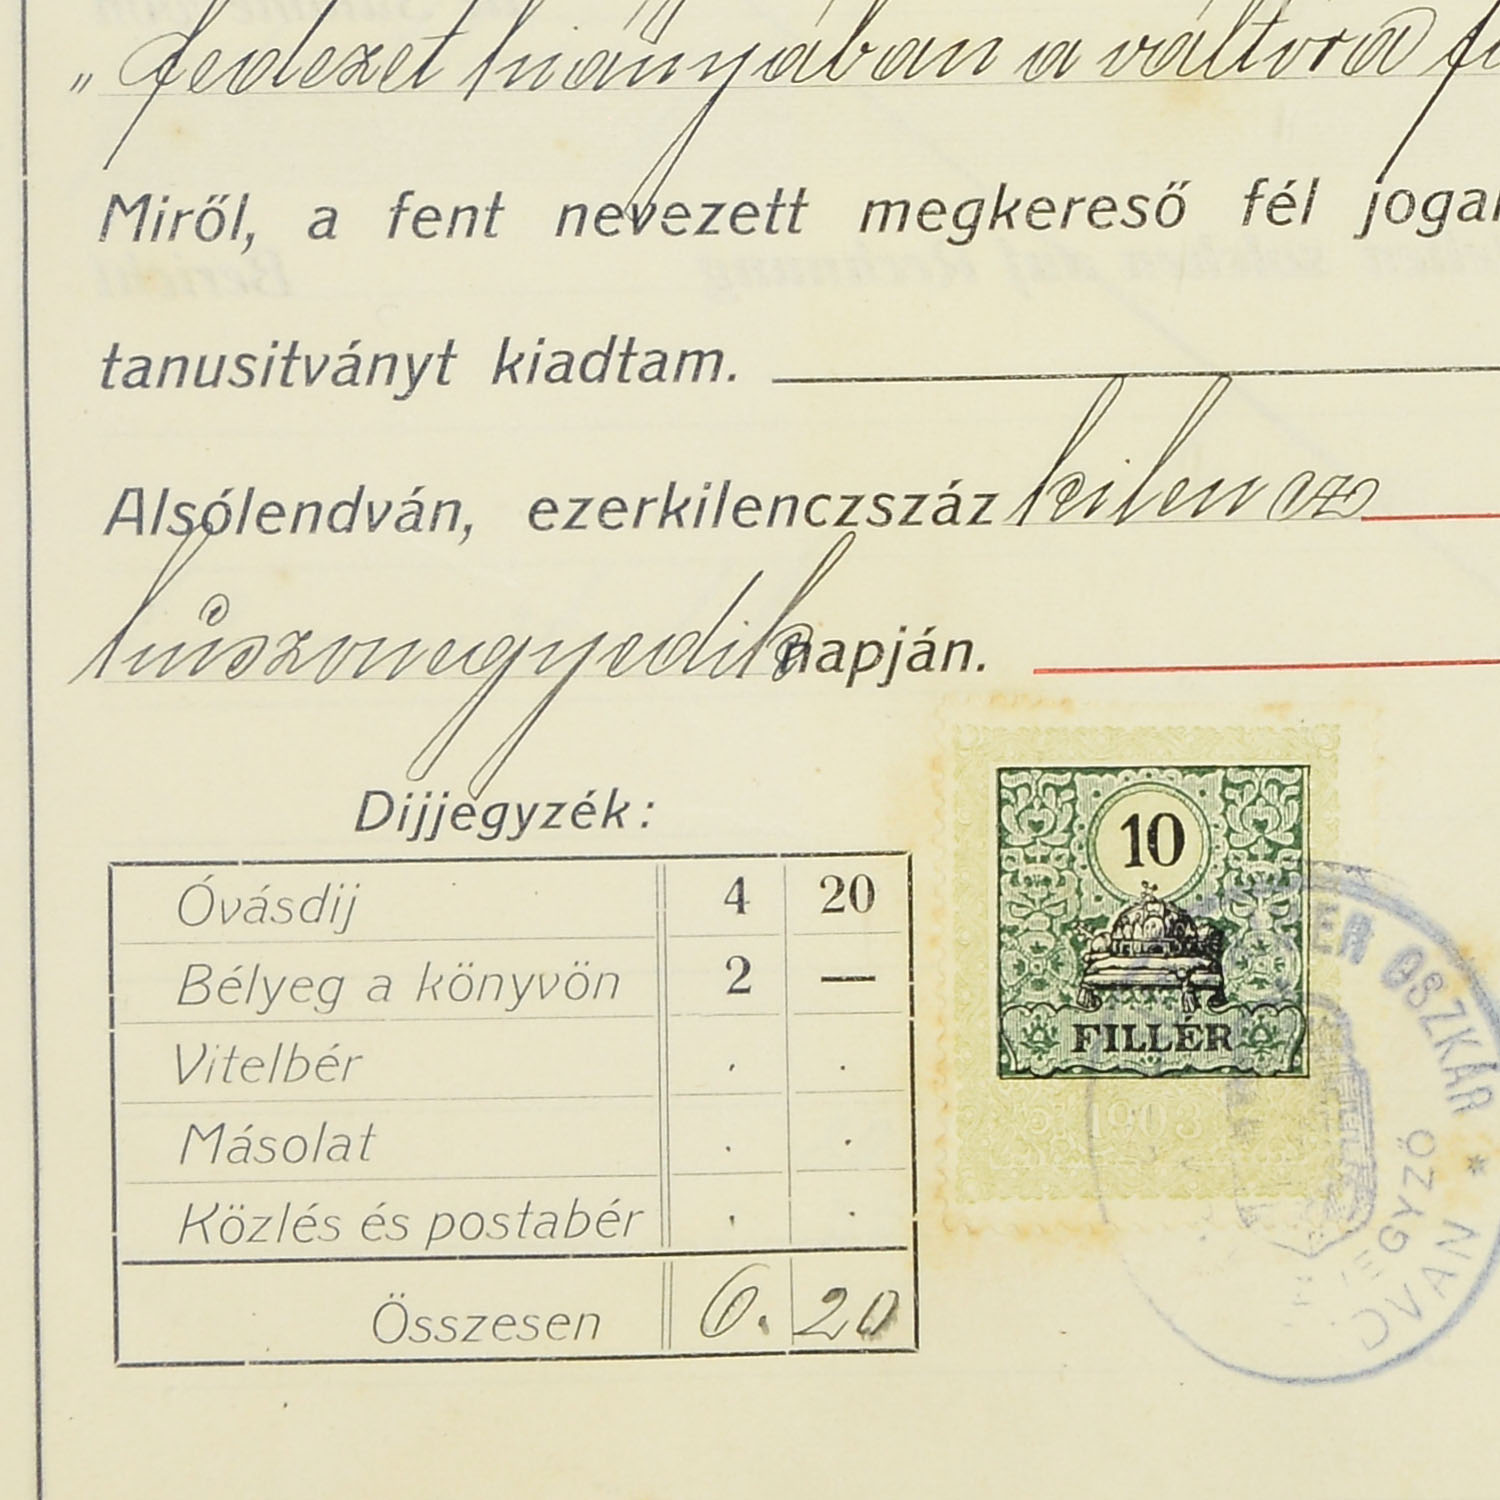 „ fedezet hiányában a váltóra
Miről, a fent nevezett megkereső fél
tanusitványt kiadtam.
Alsólendván, ezerkilenczszáz kilencz
húszonegyedik napján.
Dijjegyzék:
Óvásdij 4 20
Bélyeg a könyvön 2 —
Vitelbér . .
Másolat . .
Közlés és postabér . .
Összesen 6. 20
10
FILLÉR
1903
OSZKÁR *